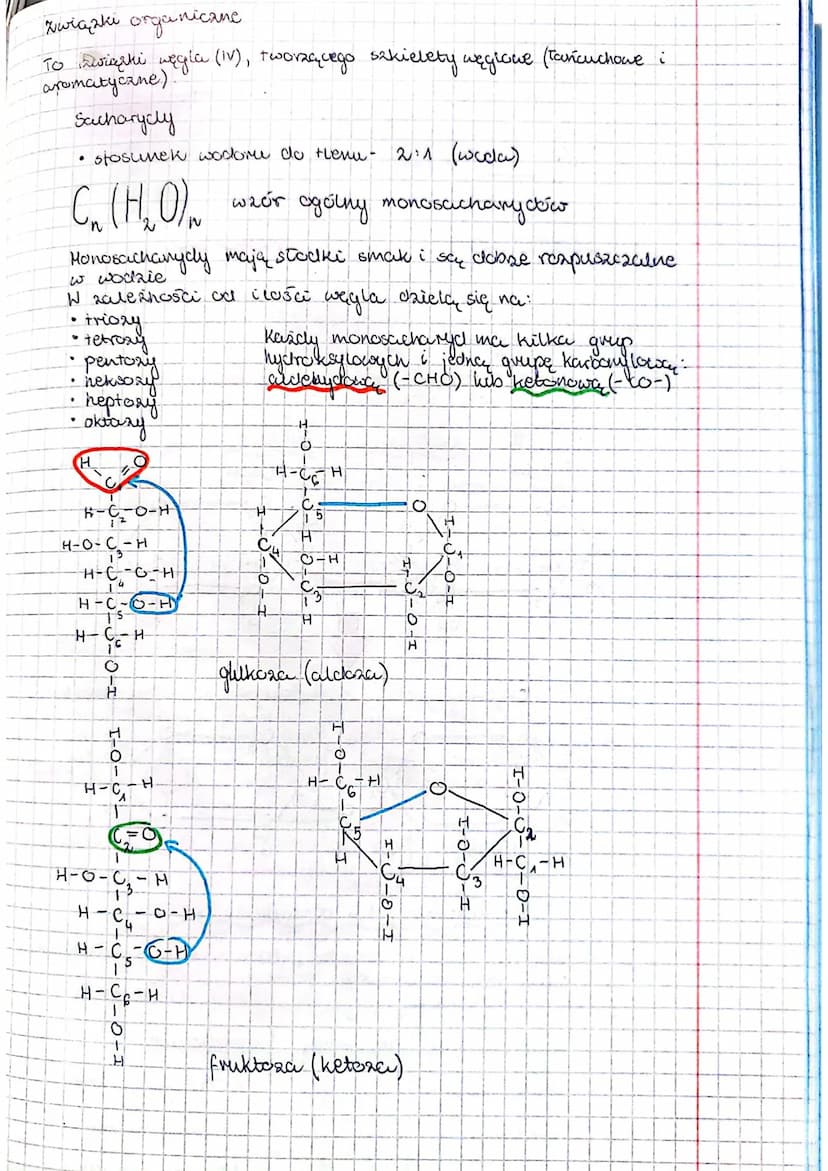 Związki organiczne
To związki węgla (IV), tworzącego szkielety węglowe (łańcuchowe i
aromatyczne)
Sacharydy
• stosunek wodoru do tlenu - 2:1 (woda)
Cn(H2O)n wzór ogólny monosacharydów
Monosacharydy mają słodki smak i są dobrze rozpuszczalne
w wodzie
W zależności od ilości węgla dzielą się na:
• triozy
• tetrozy
• pentozy
• heksozy
• heptozy
• oktozy
Każdy monosacharyd ma kilka grup
hydroksylowych i jedną grupę karbonylową:
aldehydową (-CHO) lub ketonową (-CO-)
H O
C1
H-C2-O-H
H-O-C3-H
H-C4-O-H
H-C5-O-H
H-C6-H
O
H
H
O
H-C6-H
C5 O
H H H
C4 C1
O-H H
O C3 C2 O
H H O H
H
glukoza (aldoza)
H
O
H-C1-H
C2=O
H-O-C3-H
H-C4-O-H
H-C5-O-H
H-C6-H
O
H
H
O
H-C6-H
O
H
O
C5 C2
H H H
O
C4 C3 H-C1-H
O H O
H H
fruktoza (ketoza)